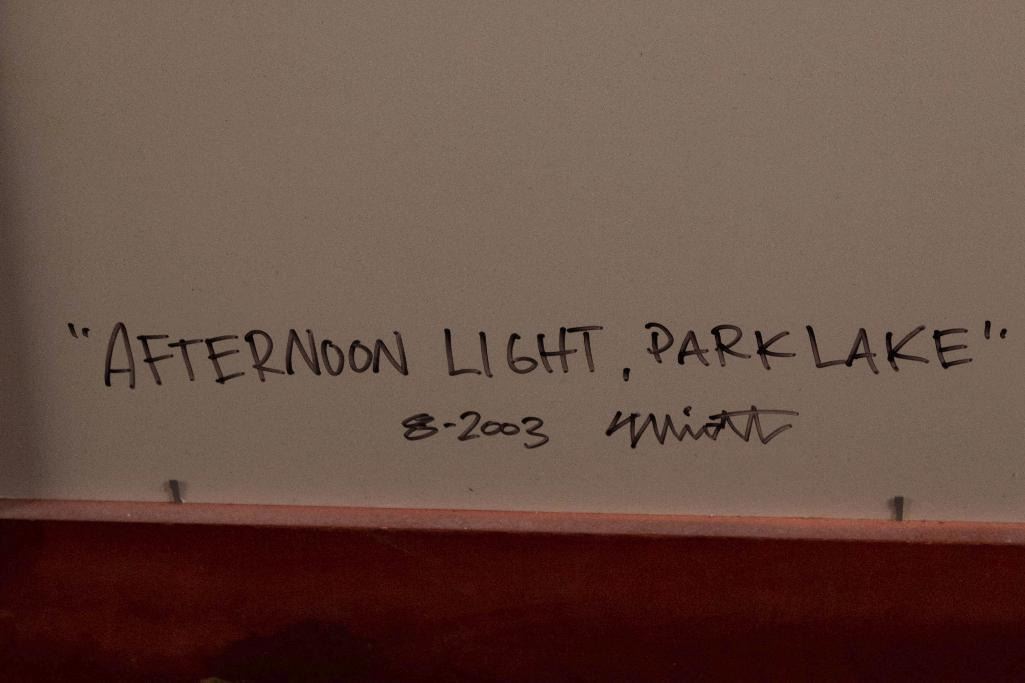 "AFTERNOON LIGHT, PARK LAKE"
8-2003